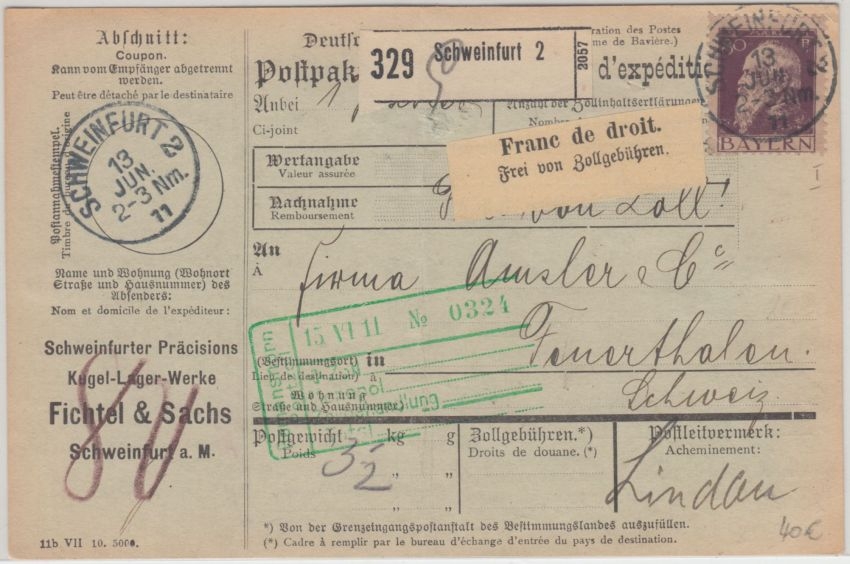 Abschnitt:
Coupon.
Kann vom Empfänger abgetrennt
werden.
Peut être détaché par le destinataire
Postannahmestempel.
Timbre du bureau d'origine
SCHWEINFURT 2
13
JUN.
2-3 Nm.
11
Name und Wohnung (Wohnort
Straße und Hausnummer) des
Absenders:
Nom et domicile de l'expéditeur:
Schweinfurter Präcisions
Kugel-Lager-Werke
Fichtel & Sachs
Schweinfurt a. M.
11b VII 10. 5000.
Deutsc
ration des Postes
me de Bavière.)
329 Schweinfurt 2 2057
Postpak
d'expéditi
Anbei 1
Ci-joint
Anzahl der Zollinhaltserklärungen
Nombre
30 P
BAYERN
SCHWEINFURT 2
13
JUN.
2-3 Nm.
11
Franc de droit.
Frei von Zollgebühren.
Wertangabe
Valeur assurée
Nachnahme
Remboursement
von Zoll!
An
À
Firma Amsler & Cie
15 VI 11 № 0324
Feuerthalen
(Bestimmungsort) in
Lieu de destination) à
Schweiz
Wohnung
Straße und Hausnummer)
Postgewicht kg g
Poids
" "
" "
Zollgebühren.*)
Droits de douane. (*)
Postleitvermerk:
Acheminement:
Lindau
*) Von der Grenzeingangspostanstalt des Bestimmungslandes auszufüllen.
(*) Cadre à remplir par le bureau d'échange d'entrée du pays de destination.
40€